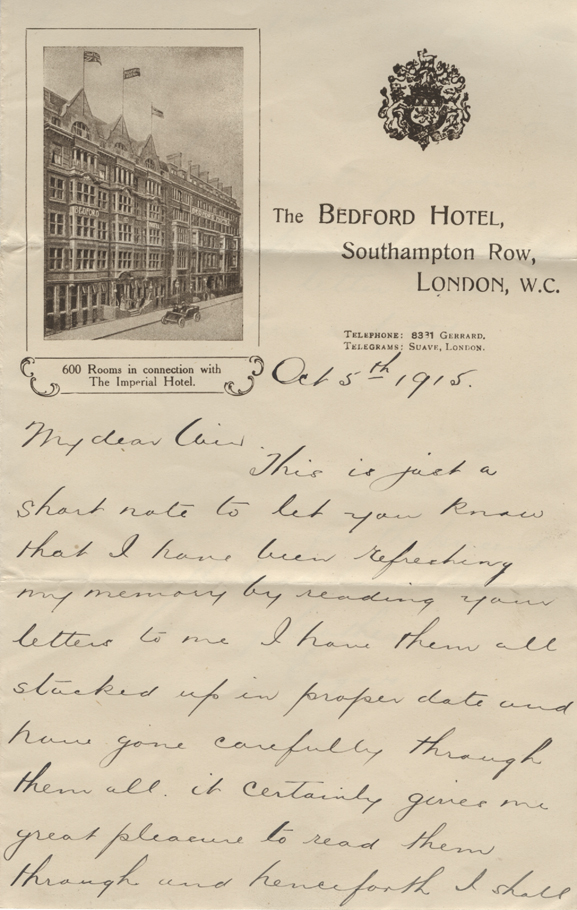 The BEDFORD HOTEL,
Southampton Row,
LONDON, W.C.
TELEPHONE: 8331 GERRARD.
TELEGRAMS: SUAVE, LONDON.
BEDFORD
600 Rooms in connection with
The Imperial Hotel.
Oct 5th 1915.
My dear
This is just a
short note to let you know
that I have been refreshing
my memory by reading your
letters to me I have them all
stacked up in proper date and
have gone carefully through
them all. it certainly gives me
great pleasure to read them
through and henceforth I shall